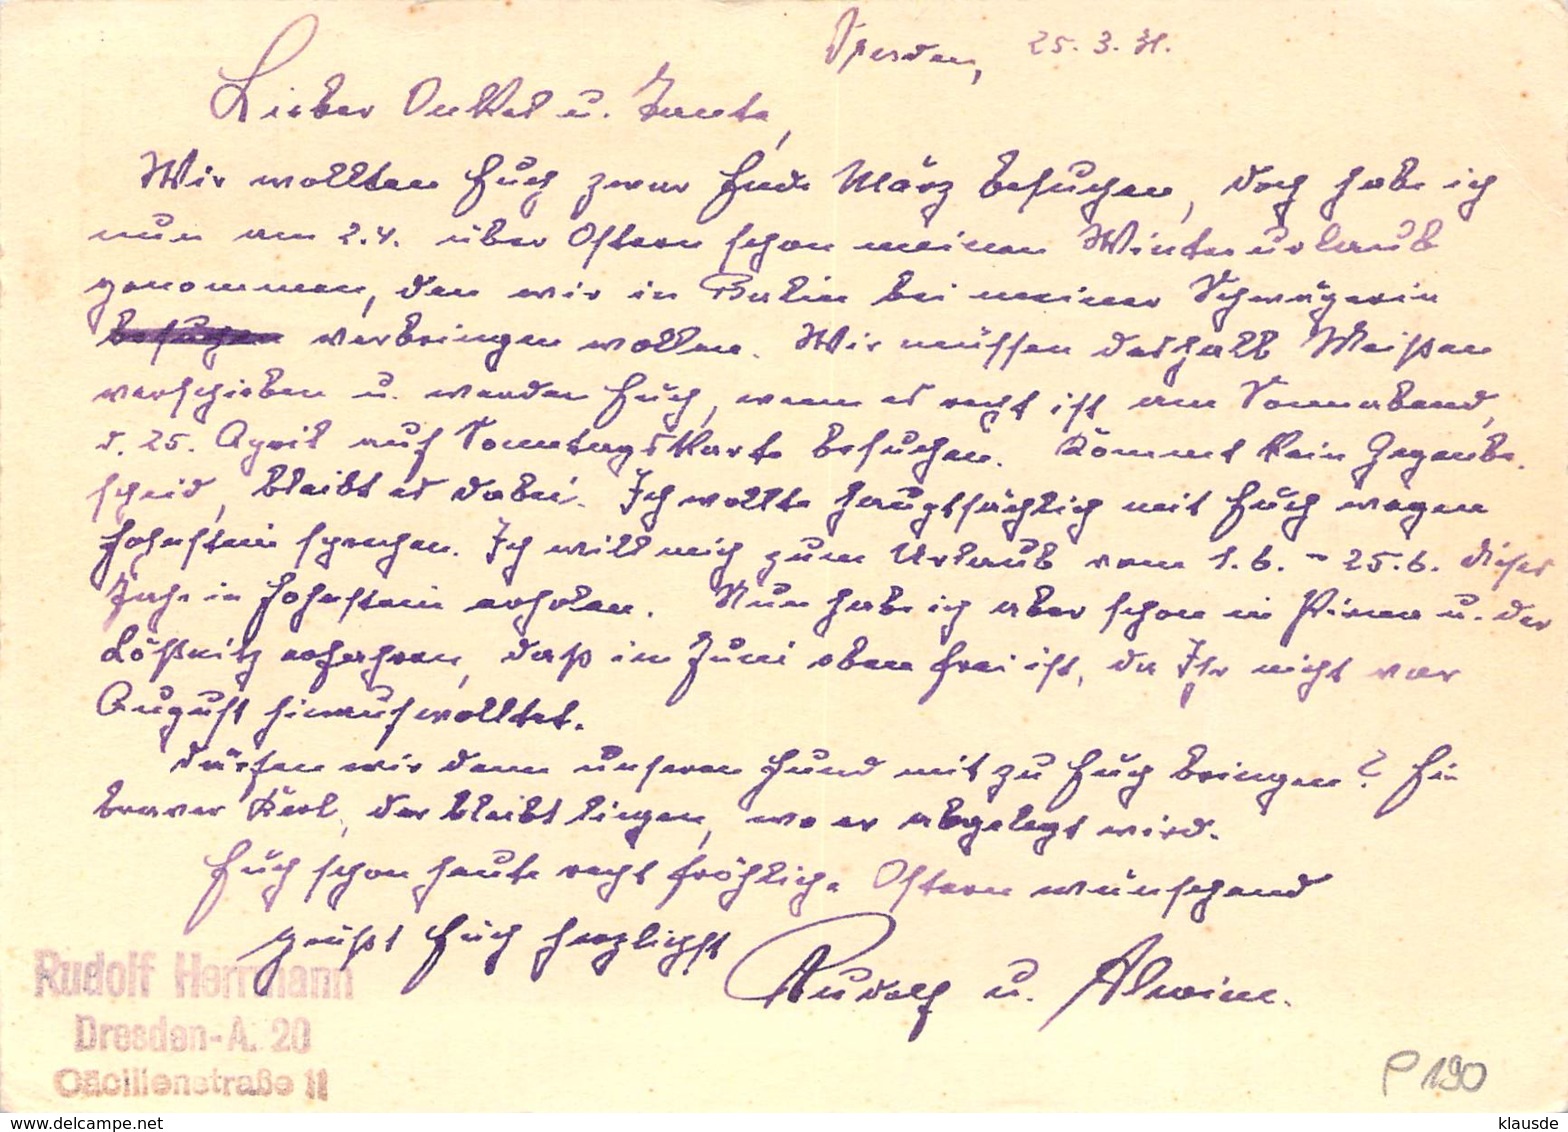 Dresden, 25. 3. 31.
Lieber Onkel u. Tante,
Wir wollten Euch zwar Ende März besuchen, doch habe ich
nun am 2.4. über Ostern schon meinen Winterurlaub
genommen, den wir in Berlin bei meiner Schwägerin
besuchen verbringen wollen. Wir müssen deshalb Meißen
verschieben u. werden Euch, wenn es recht ist am Sonnabend,
d. 25. April auf Sonntagskarte besuchen. Kommt kein Gegenbe-
scheid, bleibt es dabei. Ich wollte hauptsächlich mit Euch wegen
Hohnstein sprechen. Ich will mich zum Urlaub vom 1.6. - 25.6. dieses
Jahr in Hohnstein erholen. Nun habe ich aber schon in Pirna u. der
Lößnitz erfahren, daß im Juni oben frei ist, da Ihr nicht vor
August hinaufwolltet.
Dürfen wir denn unseren Hund mit zu Euch bringen? Ein
braver Kerl, der bleibt liegen, wo er abgelegt wird.
Euch schon heute recht fröhliche Ostern wünschend
grüßt Euch herzlichst
Rudolf u. Alwine.
Rudolf Herrmann
Dresden-A. 20
Cäcilienstraße 11
P 190
klausde
www.delcampe.net